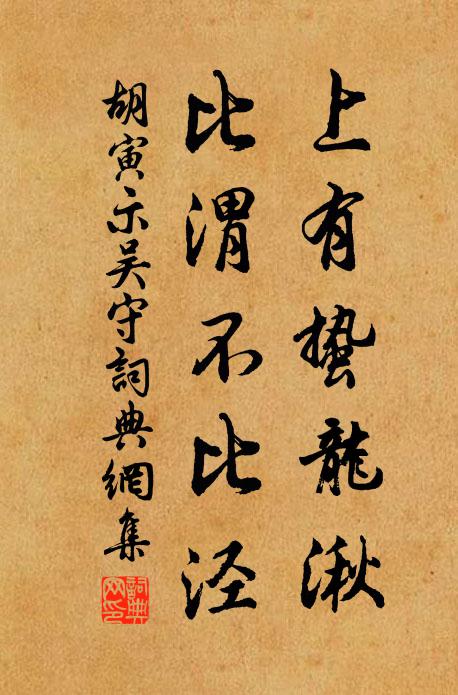 上有蛰龍湫
比渭不比泾
胡寅示吴守詞典網集
詞典网印